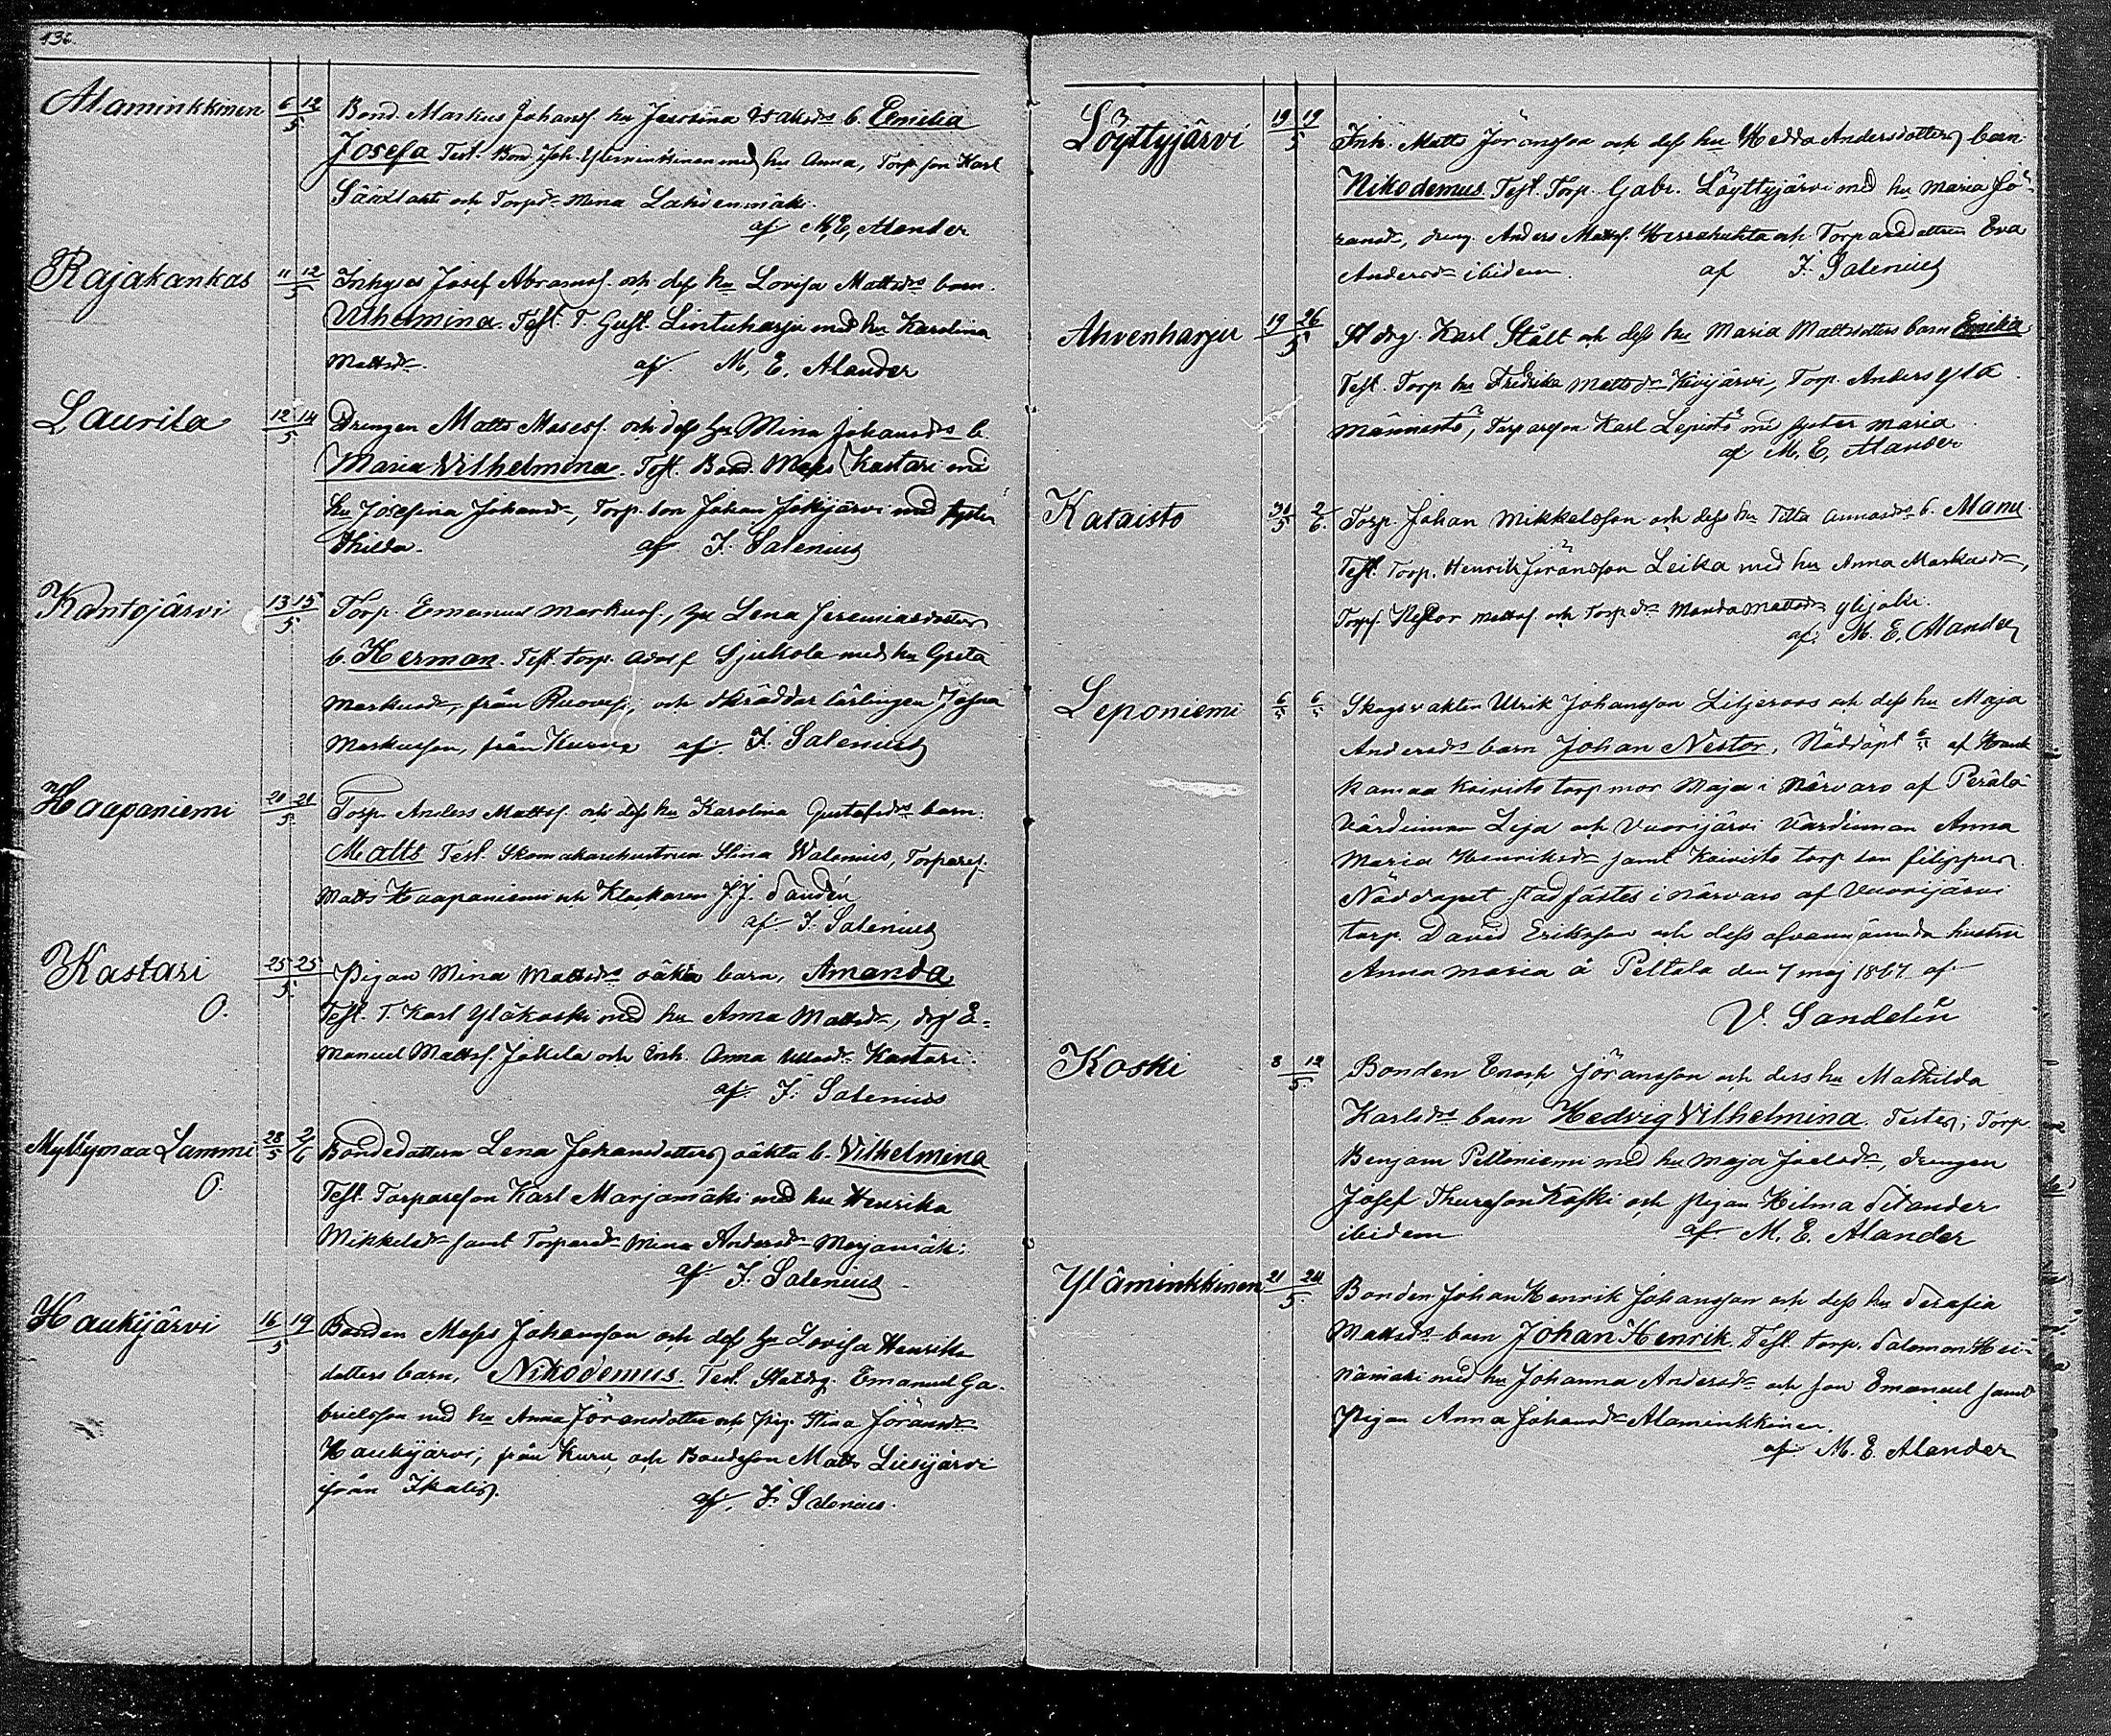 136.
Alaminkkinen 6/5 12/5 Bond. Markus Johanss. hu Josefina Isaksds b. Emilia
Josefa Test. Bond. Joh. Yleminkkinen med hu Anna, Torp. son Karl
Sääxlahti och Torpdr Mina Lahdenmäki.
af M, E, Alander
Rajakankas 11/5 12/5 Inhyses Josef Abramss. och dess hu Lovisa Mattsds barn
Vilhelmina. Test. T. Gust. Lintuharju med hu Karolina
Mattsdr. af M, E. Alander
Laurila 12/5 14/5 Drengen Matts Mosess. och dess hu Mina Johansds b.
Maria Vilhelmina. Test. Bond. Moses Kastari med
hu Josefina Johansdr, Torp. son Johan Jokijärvi med syster
Hilda. af F. Salenius
Kantojärvi 13/5 15/5 Torp. Emanuel Markuss., hu Lena Jeremiasdotters
b. Herman. Test. torp. Adolf Sjukola med hu Greta
Markusdr, från Ruovesi, och Skräddar lärlingen Josua
Markusson, från Kuru af F. Salenius
Haapaniemi 21/5 21/5 Torp. Anders Mattss. och dess hu Karolina Gustafsds barn:
Matts Test. Skomakarehustrun Stina Walenius, Torpares.
Matts Haapaniemi och Klockaren J. J. Sandén
af F. Salenius
Kastari 25/5 25/5 Pigan Mina Mattsds oäkta barn, Amanda
O. Test. T. Karl Yläkoski med hu Anna Mattsdr, drg E-
manuel Mattss. Jokela och Inh. Anna Kastari.
af F. Salenius
Myllymaa Lammi 28/5 2/6 Bondedottern Lena Johansdotters oäkta b. Vilhelmina
O. Test. Torpareson Karl Marjamäki med hu Henrika
Mikkelsdr samt Torparedr Mina Andersdr Marjamäki.
af F. Salenius
Haukijärvi 16/5 19/5 Bonden Moses Johansson och dess hu Lovisa Henriks
dotters barn, Nikodemus. Test. Statdrg. Emanuel Ga-
brielsson med hu Anna Jöransdotter och pig. Stina Jöransdr
Haukijärvi, från Kuru och Bondeson Matts Liesijärvi
från Ikalis. af, F. Salenius.
Löyttyjärvi 19/5 19/5 Inh. Matts Jöransson och dess hu Hedda Andersdotters barn
Nikodemus. Test. Torp. Gabr. Löyttyjärvi med hu Maria Jö-
ransdr, dreng. Anders Mattss. och Torparedottern Eva
Andersdr ibidem. af F. Salenius
Ahvenharju 19/5 26/5 St drg. Karl Stålt och dess hu Maria Mattsdotters barn Emilia
Test. Torp hu Fredrika Mattsdr Kivijärvi, Torp. Anders Ylä
männistö, Torpareson Karl Lepistö med syster Maria
af M. E, Alander
Kataisto 31/5 2/6 Torp. Johan Mikkelsson och dess hu Titta b. Manu
Test. Torp. Henrik Jöransson Leika med hu Anna Markusdr,
Torps. Nestor Mattss. och Torpdr Manda Mattsdr Ylijoki.
af M. E. Alander
Leponiemi 6/5 6/5 Skogsvakten Ulrik Johansson Liljeroos och dess hu Maja
Andersds barn Johan Nestor, Nöddöpt 6/5 af
kamaa Koivisto torp mor Maja i närvaro af Perälä
värdinnan Leja och Vuorijärvi värdinnan Anna
Maria Henriksdr samt Koivisto torp son Filippus
Nöddopet stadfästes i närvaro af Vuorijärvi
torp. David Eriksson och dess ofvannämnda hustru
Anna Maria å Peltala den 7 maj 1867 af
V. Sandelin
Koski 8/5 12/5 Bonden Enok Jöransson och dess hu Mathilda
Karlsds barn Hedvig Vilhelmina. Testes; Torp
Benjam Peltoniemi med hu Maja Joelsdr, drengen
Josef Thuresson Koski och pigan Hilma Silander
ibidem af M. E. Alander
Yläminkkinen 21/5 24/5 Bonden Johan Henrik Johansson och dess hu Serafia
Mattsds barn Johan Henrik. Test. torp. Salomon Hei-
nämäki med hu Johanna Andersdr och son Emanuel samt
Pigan Anna Johansdr Alaminkkinen.
af M. E. Alander